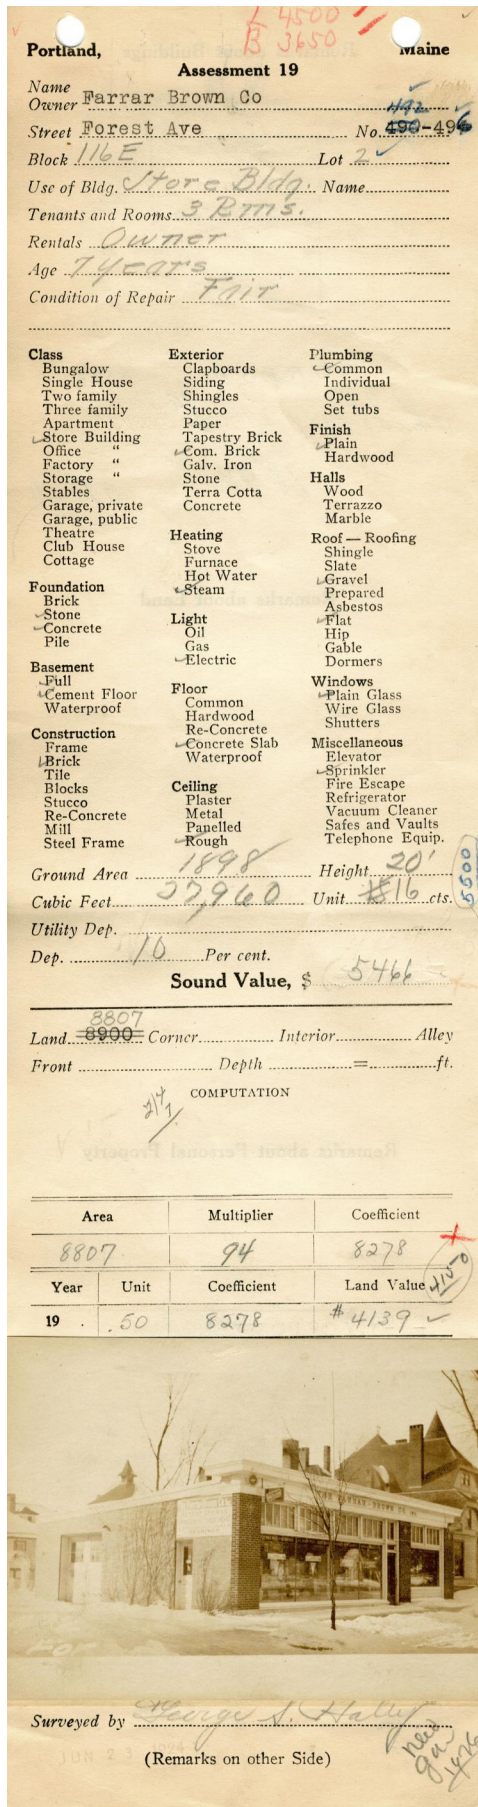 L 4500
B 3650
Portland, Maine
Assessment 19
Name
Owner Farrar Brown Co
492
Street Forest Ave No. 490-496
Block 116E Lot 2
Use of Bldg. Store Bldg. Name
Tenants and Rooms 3 Rms.
Rentals Owner
Age 7 years
Condition of Repair Fair
Class
Bungalow
Single House
Two family
Three family
Apartment
Store Building
Office "
Factory "
Storage "
Stables
Garage, private
Garage, public
Theatre
Club House
Cottage
Foundation
Brick
Stone
Concrete
Pile
Basement
Full
Cement Floor
Waterproof
Construction
Frame
Brick
Tile
Blocks
Stucco
Re-Concrete
Mill
Steel Frame
Exterior
Clapboards
Siding
Shingles
Stucco
Paper
Tapestry Brick
Com. Brick
Galv. Iron
Stone
Terra Cotta
Concrete
Heating
Stove
Furnace
Hot Water
Steam
Light
Oil
Gas
Electric
Floor
Common
Hardwood
Re-Concrete
Concrete Slab
Waterproof
Ceiling
Plaster
Metal
Panelled
Rough
Plumbing
Common
Individual
Open
Set tubs
Finish
Plain
Hardwood
Halls
Wood
Terrazzo
Marble
Roof — Roofing
Shingle
Slate
Gravel
Prepared
Asbestos
Flat
Hip
Gable
Dormers
Windows
Plain Glass
Wire Glass
Shutters
Miscellaneous
Elevator
Sprinkler
Fire Escape
Refrigerator
Vacuum Cleaner
Safes and Vaults
Telephone Equip.
Ground Area 1898 Height 20'
Cubic Feet 37,960 Unit $16 cts.
5500
Utility Dep.
Dep. 10 Per cent.
Sound Value, $ 5466
8807
Land 8900 Corner Interior Alley
Front Depth = ft.
COMPUTATION
Area Multiplier Coefficient
8807 94 8278
Year Unit Coefficient Land Value
4150
19 .50 8278 $4139
Surveyed by George S.
JUN 23
new
gar
(Remarks on other Side)